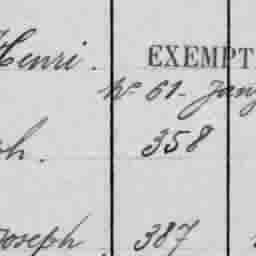 Henri. EXEMPT
No 61-
358
Joseph 387